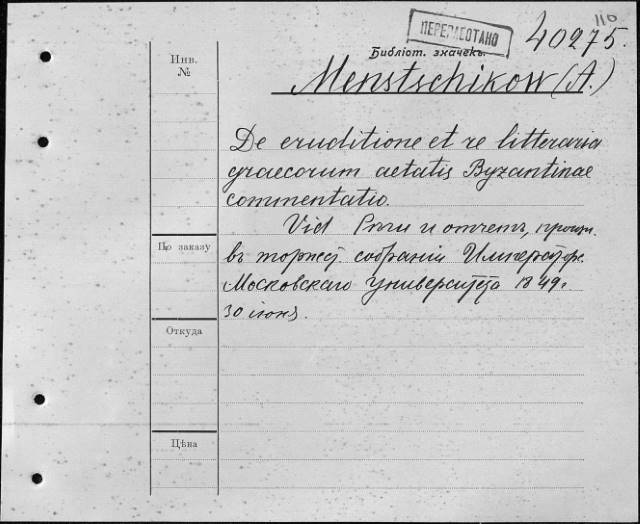 116
ПЕРЕРАБОТАНО
40275.
Библіот. значекъ.
Menstschikow (A.)
Инв.
№
De eruditione et re litteraria
graecorum aetatis Byzantinae
commentatio.
Vid Рѣчи и отчетъ, произн.
въ торжест. собраніи Императ.
Московскаго Университета 1849г
30 іюня.
По заказу
Откуда
Цѣна